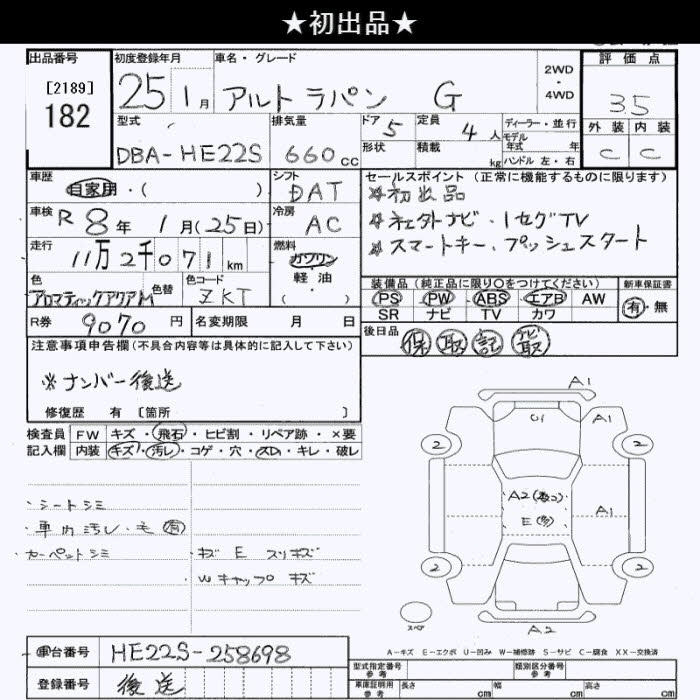 ★初出品★
出品番号 初度登録年月 車名・グレード 2WD・4WD 評価点
[2189]
182 25 1月 アルトラパン G 3.5
型式 排気量 ドア 5 定員 4人 ディーラー・並行 外装 内装
モデル年式 年式
DBA-HE22S 660cc 形状 積載 kg ハンドル 左・右 C C
車歴 シフト セールスポイント(正常に機能するものに限ります)
自家用・( ) DAT ※初出品
車検 R8年 1月(25日) 冷房 AC ※社外ナビ・1セグTV
走行 11万2千071km 燃料 ガソリン ※スマートキー、プッシュスタート
軽油
・( )
色 色替 色コード 装備品(純正品に限り○をつけてください) 新車保証書
アロマティックアクアM ZKT PS PW ABS エアB AW 有・無
SR ナビ TV カワ
R券 9070円 名変期限 月 日 後日品 保 取 記 ナビ取
注意事項申告欄(不具合内容等は具体的に記入して下さい)
※ナンバー後送
修復歴 有 [箇所 ]
検査員 FW キズ・飛石・ヒビ割・リペア跡・×要
記入欄 内装 キズ・汚レ・コゲ・穴・スレ・キレ・破レ
・シートシミ
・車内汚レ・毛有
・カーペットシミ ・キズ E スリキズ
・Wキャップ キズ
A1
U1 A1
2 2
A2(数コ)
E(多)
A1
2 2
スペア
A2
A-キズ E-エクボ U-凹み W-補修跡 S-サビ C-腐食 XX-交換済
車台番号 HE22S-258698
登録番号 後送
型式指定番号 参考 類別区分番号 参考
車庫証明用 参考 長さ cm 幅 cm 高さ cm